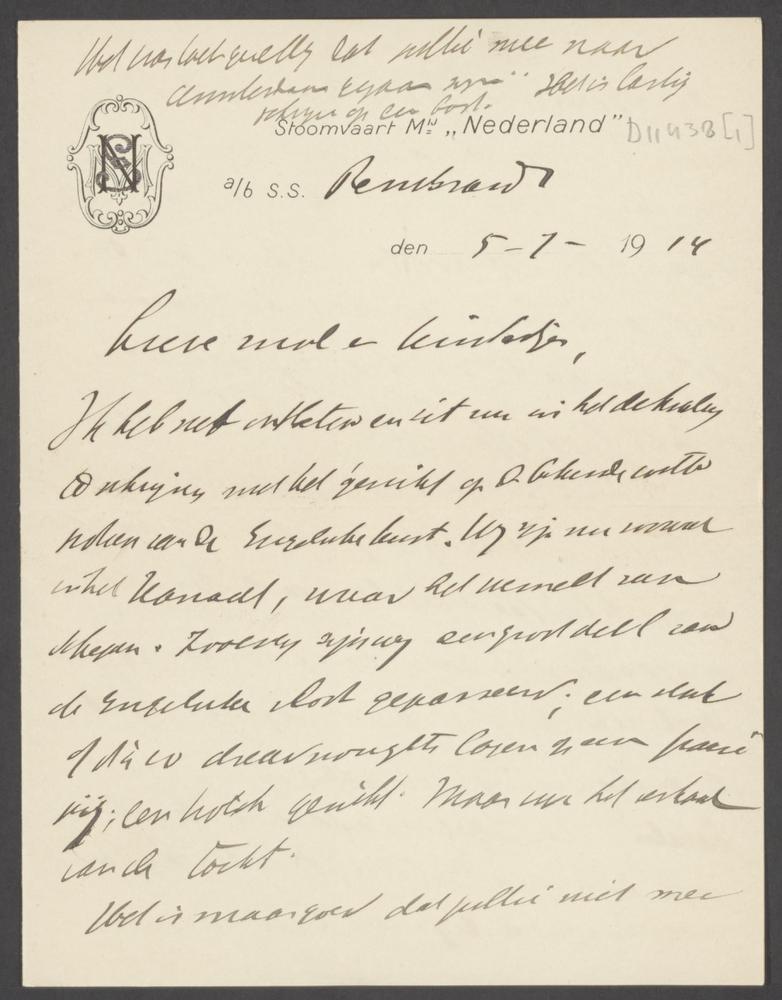 Wat was het gezellig dat jullie mee naar
Amsterdam gegaan zijn. Het is lastig
schrijven op een boot.
Stoomvaart Mij „Nederland”
D11438[1]
a/b S.S. Rembrandt
den 5-7-1914
Lieve mol en kindertjes,
Ik heb net ontbeten en zit nu in het dek
te schrijven met het gezicht op de bekende witte
rotsen van de Engelsche kust. Wij zijn nu
in het Kanaal, waar het wemelt van
schepen. Zooeven zijn wij een groot deel van
de Engelsche vloot gepasseerd; een stuk
of dreadnoughts lagen op een
rij; een gezicht. Maar nu het verhaal
van de tocht.
Het is maar goed dat jullie niet mee